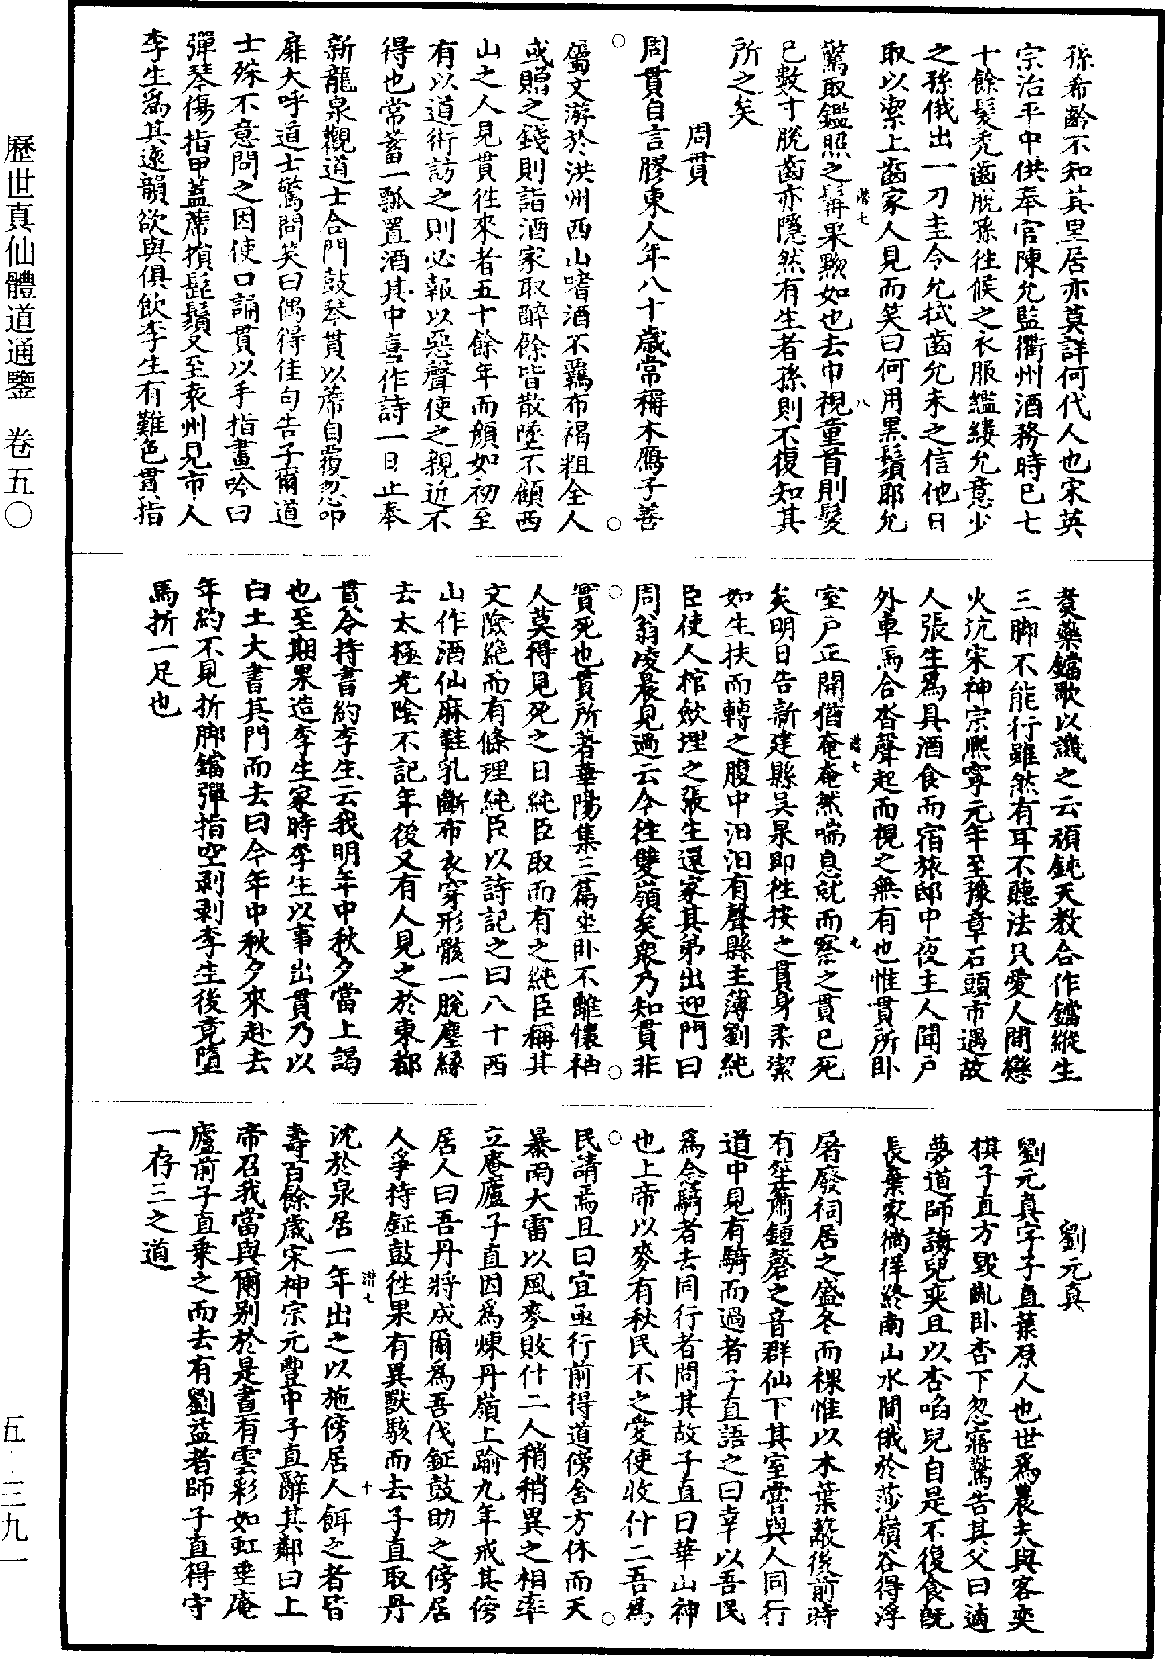 孫希齡不知其里居亦莫詳何代人也宋英
宗治平中供奉官陳允監衢州酒務時已七
十餘髮禿齒脫孫往候之衣服繿縷允意少
之孫俄出一刀圭令允拭齒允未之信他日
取以潔上齒家人見而笑曰何用黑鬚耶允
驚取鑑照之髯果黝如也去巾視童首則髮
已數寸脫齒亦隱然有生者孫則不復知其
所之矣
周貫
周貫自言膠東人年八十歲常稱木鴈子善
屬文游於洪州西山嗜酒不羈布褐粗全人
或贈之錢則詣酒家取醉餘皆散墜不顧西
山之人見貫往來者五十餘年而顏如初至
有以道術訪之則必報以惡聲使之親近不
得也常蓄一瓢置酒其中喜作詩一日止奉
新龍泉觀道士合門鼓琴貫以蓆自覆忽叩
扉大呼道士驚問笑曰偶得佳句告子爾道
士殊不意問之因使口誦貫以手指畫吟曰
彈琴傷指甲蓋蓆損髭鬚又至袁州見市人
李生爲其逺韻欲與俱飲李生有難色貫指
煑藥鐺歌以譏之云頑鈍天教合作鐺縱生
三脚不能行雖然有耳不聽法只愛人間戀
火坑宋神宗熙寧元年至豫章石頭市遇故
人張生爲具酒食而宿旅邸中夜主人聞戶
外車馬合沓聲起而視之無有也惟貫所卧
室戶正開猶奄奄然喘息就而察之貫已死
矣明日告新建縣吳杲即往按之貫身柔潔
如生扶而轉之腹中汩汩有聲縣主薄劉純
臣使人棺歛埋之張生還家其弟出迎門曰
周翁凌晨見過云今往雙嶺矣衆乃知貫非
實死也貫所著華陽集三篇坐卧不離懷袖
人莫得見死之日純臣取而有之純臣稱其
文險絶而有條理純臣以詩記之曰八十西
山作酒仙麻鞋乳斷布衣穿形骸一脫塵緣
去太極光陰不記年後又有人見之於東都
貫令持書約李生云我明年中秋夕當上謁
也至期果造李生家時李生以事出貫乃以
白土大書其門而去曰今年中秋夕來赴去
年約不見折脚鐺彈指空剥剥李生後竟墮
馬折一足也
劉元真
劉元真字子直葉原人也世爲農夫與客奕
棋子直方毀亂卧杏下忽寤驚告其父曰適
夢道師誨兒奕且以杏啗兒自是不復食旣
長棄家徜徉終南山水間俄於莎嶺谷得浮
屠廢祠居之盛冬而裸惟以木葉蔽後前時
有笙簫鍾磬之音群仙下其室嘗與人同行
道中見有騎而過者子直語之曰幸以吾民
爲念騎者去同行者問其故子直曰華山神
也上帝以麥有秋民不之愛使收什二吾爲
民請焉且曰宜亟行前得道傍舍方休而天
暴雨大雷以風麥敗什二人稍稍異之相率
立庵廬子直因爲煉丹嶺上踰九年戒其傍
居人曰吾丹將成爾爲吾伐鉦鼓助之傍居
人爭持鉦鼓往果有異獸駭而去子直取丹
沈於泉居一年出之以施傍居人餌之者皆
壽百餘歲宋神宗元豐中子直辭其鄰曰上
帝召我當與爾别於是晝有雲彩如虹垂庵
廬前子直乘之而去有劉益者師子直得守
一存三之道
歷世真仙體道通鑒　卷五〇
五·三九一